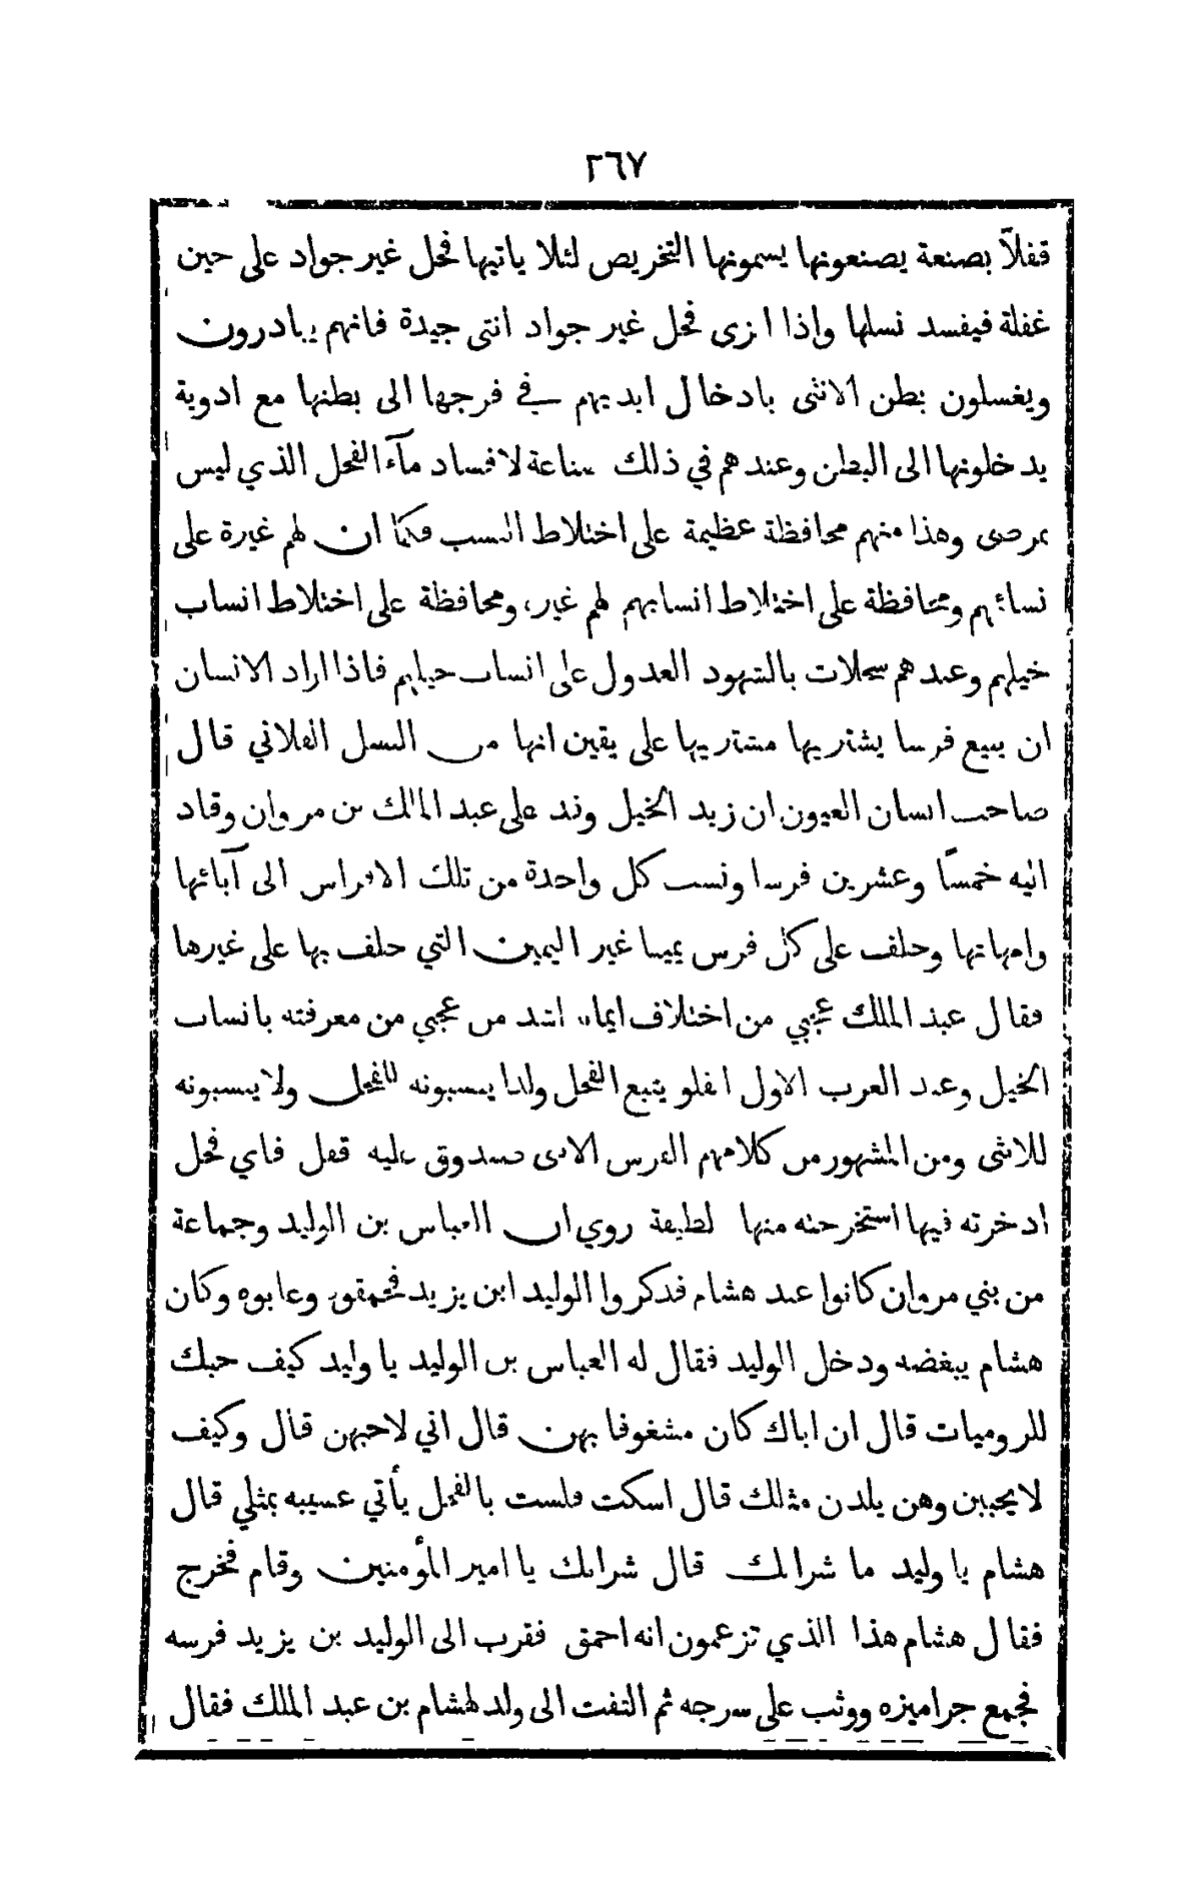 ٢٦٧
قفلاً بصنعة يصنعونها يسمونها التخريص لئلا ياتيها فحل غير جواد على حين
غفلة فيفسد نسلها واذا انزى فحل غير جواد انثى جيدة فانهم يبادرون
ويغسلون بطن الانثى بادخال ايديهم في فرجها الى بطنها مع ادوية
يدخلونها الى البطن وعندهم في ذلك صناعة لافساد مآء الفحل الذي ليس
بمرضى وهذا منهم محافظة عظيمة على اختلاط النسب فكما ان لهم غيرة على
نسائهم ومحافظة على اختلاط انسابهم لهم غيرة ومحافظة على اختلاط انساب
خيلهم وعندهم سجلات بالشهود العدول على انساب خيلهم فاذا اراد الانسان
ان يبيع فرسا يشتريها مشتريها على يقين انها من النسل الفلاني قال
صاحب انسان العيون ان زيد الخيل وفد على عبد المالك بن مروان وقاد
اليه خمسًا وعشرين فرسا ونسب كل واحدة من تلك الافراس الى آبائها
وامهاتها وحلف على كل فرس يمينا غير اليمين التي حلف بها على غيرها
فقال عبد الملك عجبي من اختلاف ايمانه اشد من عجبي من معرفته بانساب
الخيل وعند العرب الاول الفلو يتبع الفحل ولذا ينسبونه للفحل ولا ينسبونه
للانثى ومن المشهور من كلامهم الفرس الانثى صندوق عليه قفل فاي فحل
ادخرته فيها استخرجته منها لطيفة روي ان العباس بن الوليد وجماعة
من بني مروان كانوا عند هشام فذكروا الوليد ابن يزيد فحمقوه وعابوه وكان
هشام يبغضه ودخل الوليد فقال له العباس بن الوليد يا وليد كيف حبك
للروميات قال ان اباك كان مشغوفا بهن قال اني لاحبهن قال وكيف
لا يحببن وهن يلدن مثلك قال اسكت فلست بالفحل يأتي عسيبه بمثلي قال
هشام يا وليد ما شرابك قال شرابك يا امير المؤمنين وقام فخرج
فقال هشام هذا الذي تزعمون انه احمق فقرب الى الوليد بن يزيد فرسه
فجمع جراميزه ووثب على سرجه ثم التفت الى ولد لهشام بن عبد الملك فقال